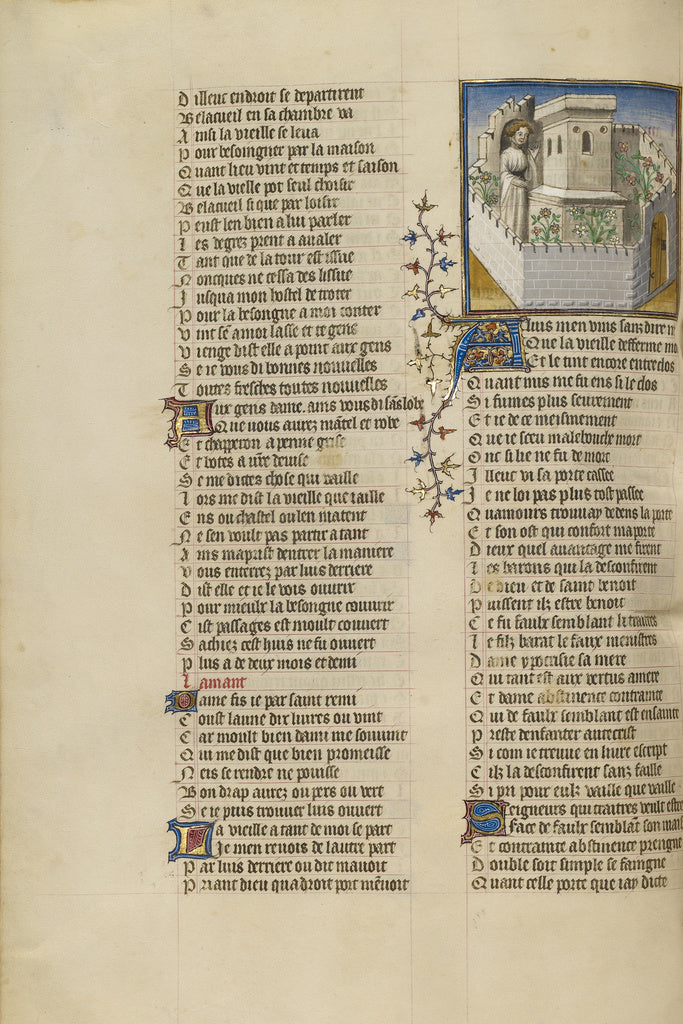 D illeuc endroit se departirent
B elacueil en sa chambre va
A insi la vieille se leua
P our besoingner par la maison
Q uant lieu vint et temps et saison
Q ue la vielle pot seul choisir
B elacueil si que par loisir
P eust len bien a lui parler
L es degrez prent a aualer
T ant que de la tour est issue
N oncques ne cessa des lissue
J usqua mon hostel de troter
P our la besongne a moy conter
V int sē a moi lasse et
V ienge dist elle a point aux gens
S e ie vous di bonnes nouuelles
T outes fresches toutes nouuelles
A ux gens dame ains vous di sās lobe
Q ue vous aurez mātel et robe
E t chapperon a penne grise
E t botes a vr̄e deuise
S e me dictes chose qui vaille
L ors me dist la vieille que iaille
E ns ou chastel ou len matent
N e sen voult pas partir a tant
A ins maprist dentrer la maniere
V ous enterrez par luis derriere
D ist elle et ie le vois ouurir
P our mieulx la besongne couurir
C ist passages est moult couuert
S achiez cest huis ne fu ouuert
P lus a de deux mois et demi
Lamant
D ame fis ie par saint remi
C oust laune dix liures ou vint
C ar moult bien dami me souuint
Q ui me dist que bien promeisse
N eis se rendre ne pouisse
B on drap aurez ou pers ou vert
S e ie puis trouuer luis ouuert
L a vieille a tant de moi se part
J e men reuois de lautre part
P ar luis derriere ou dit mauoit
P riant dieu qua droit port
A luis men vins sanz dire
Q ue la vieille defferme
E t le tint encore entreclos
Q uant mis me fu ens si le clos
S i fumes plus seurement
E t ie de ce meismement
Q ue ie sceu malebouche mort
O nc si lie ne fu de mort
J lleuc vi sa porte cassee
J e ne loi pas plus tost passee
Q uamours trouuay dedens la porte
E t son ost qui confort maporte
D ieux quel auantage me firent
L es barons qui la desconfirent
D e dieu et de saint benoit
P uissent ilz estre benoit
C e fu faulx semblant li traitres
L e filz barat le faux menistres
D ame ypocrisie sa mere
Q ui tant est aux vertus amere
E t dame abstinence contrainte
Q ui de faulx semblant est ensainte
P reste denfanter antecrist
S i com ie treuue en liure escript
C ilz la desconfirent sanz faille
S i pri pour eulz vaille que vaille
S eigneurs qui traitres veult estre
F ace de faulx semblāt son
E t contrainte abstinence prengne
D ouble soit simple se faingne
Q uant celle porte que iay dicte